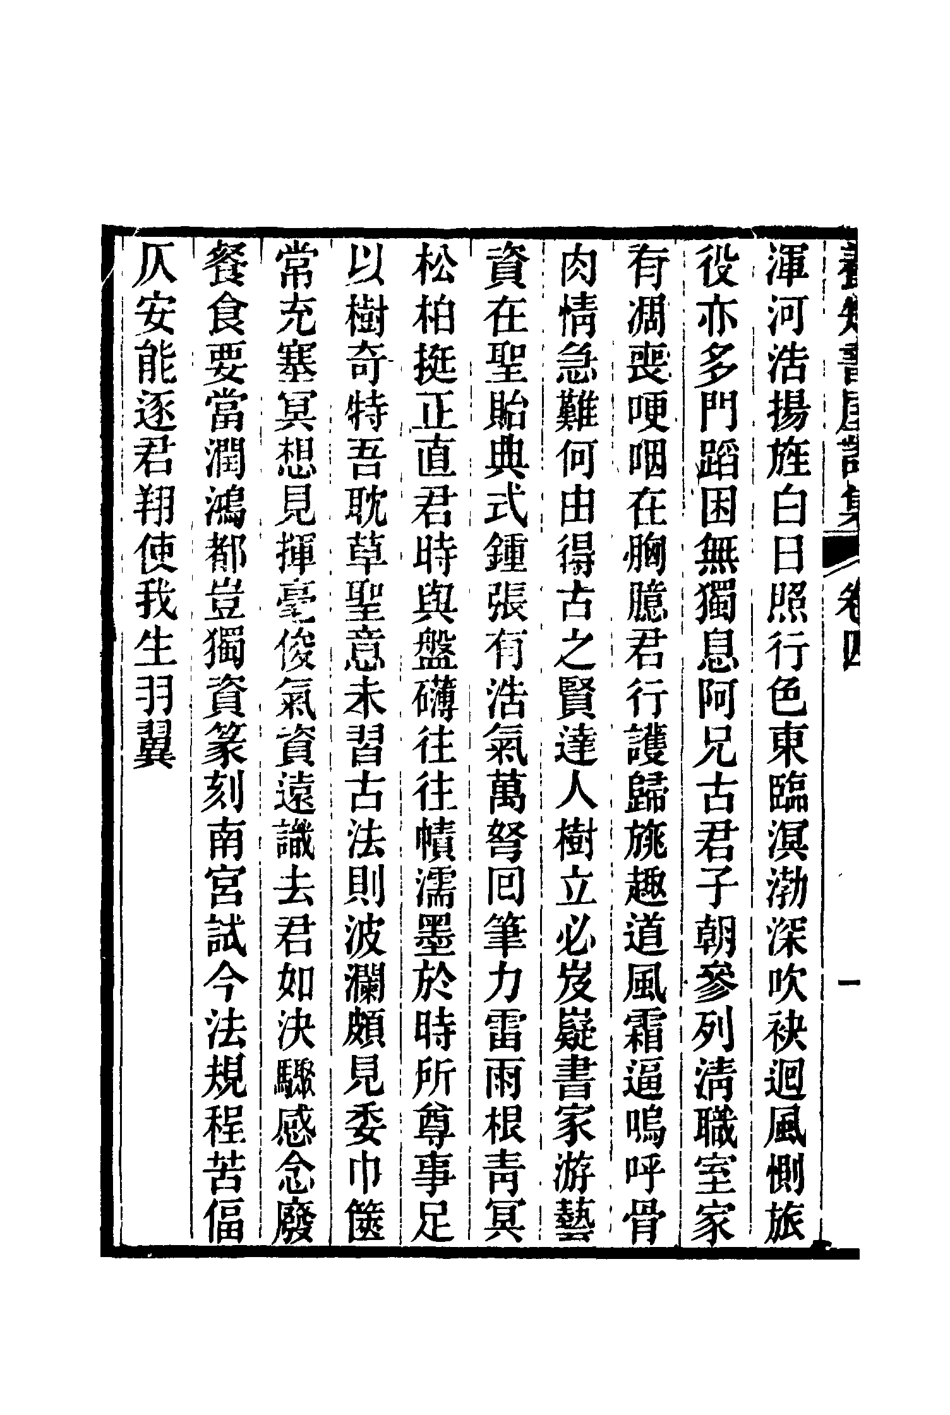 養知書屋詩集 卷四 一
渾河浩揚旌白日照行色東臨溟渤深吹袂迴風惻旅
役亦多門蹈困無獨息阿兄古君子朝參列淸職室家
有凋喪哽咽在胸臆君行護歸旐趣道風霜逼嗚呼骨
肉情急難何由得古之賢達人樹立必岌嶷書家游藝
資在聖貽典式鍾張有浩氣萬弩回筆力雷雨根靑冥
松柏挺正直君時與盤礴往往幘濡墨於時所尊事足
以樹奇特吾耽草聖意未習古法則波瀾頗見委巾篋
常充塞冥想見揮毫俊氣資遠識去君如決驟感念廢
餐食要當潤鴻都豈獨資篆刻南宮試今法規程苦偪
仄安能逐君翔使我生羽翼